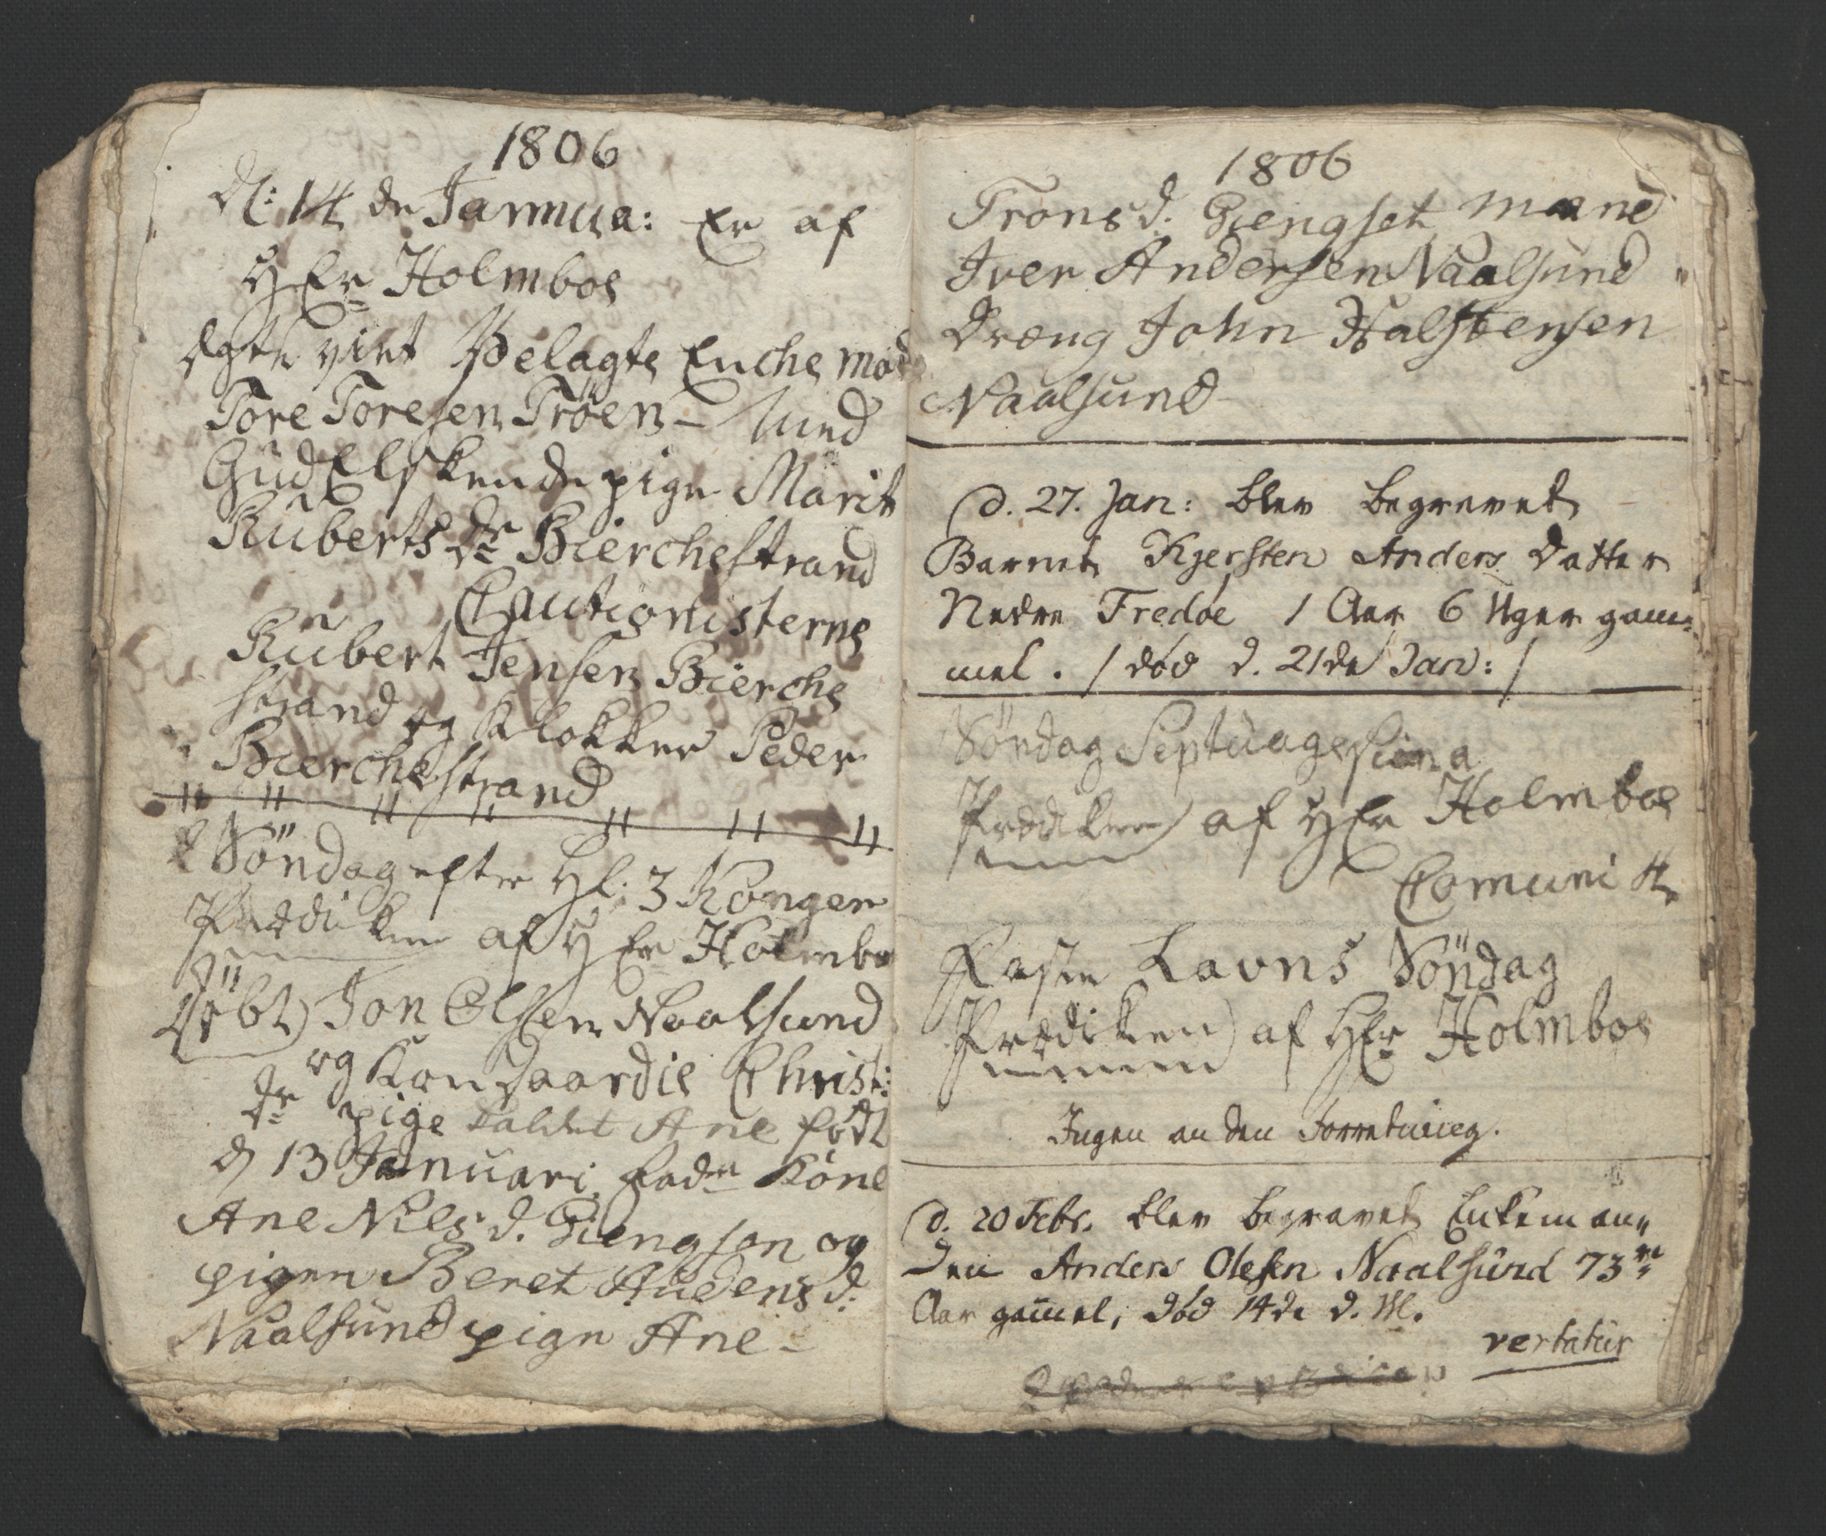 1806
d: 14 de Jannua: Er af
HEr Holmboe
Egte viet Velagte Enche mand
Tore Toresen Tröen – Med
Gud Elskende pige Marit
Kuberts dr Bierchestrand
Cautionisterne
Kubert Jensen Bierche
strand og Klokker Peder
Bierchestrand
Söndag efter Hl: 3 Konger
Prædiken af HEr Holmbo
döbt Jon Olsen Naalsund
og Christ:
dr pige kaldet Ane född
d 13 Januari fadr Köne
Ane Nils d. Giengson og
pigen Beret Audens d:
Naalsund pige Ane –
1806
Trons d. Giengset mænd
Iver Andersen Naalsund
Dræng John Halstensen
Naalsund
d. 27. Jan: blev begravet
Barnet Kjersten Anders Datter
Nedre Fredøe 1 Aar 6 Uger gam-
mel. / død d. 21de Jan: /
Söndag Septuagesima
Prædiken af HEr Holmboe
Comuni
Faste Lavns Söndag
Prædiken af HEr Holmboe
Ingen anden Forretning.
d. 20 Febr. blev begravet Enkeman-
den Anders Olesen Naalsund 73
Aar gamel, død 14de d. M.
vertatur